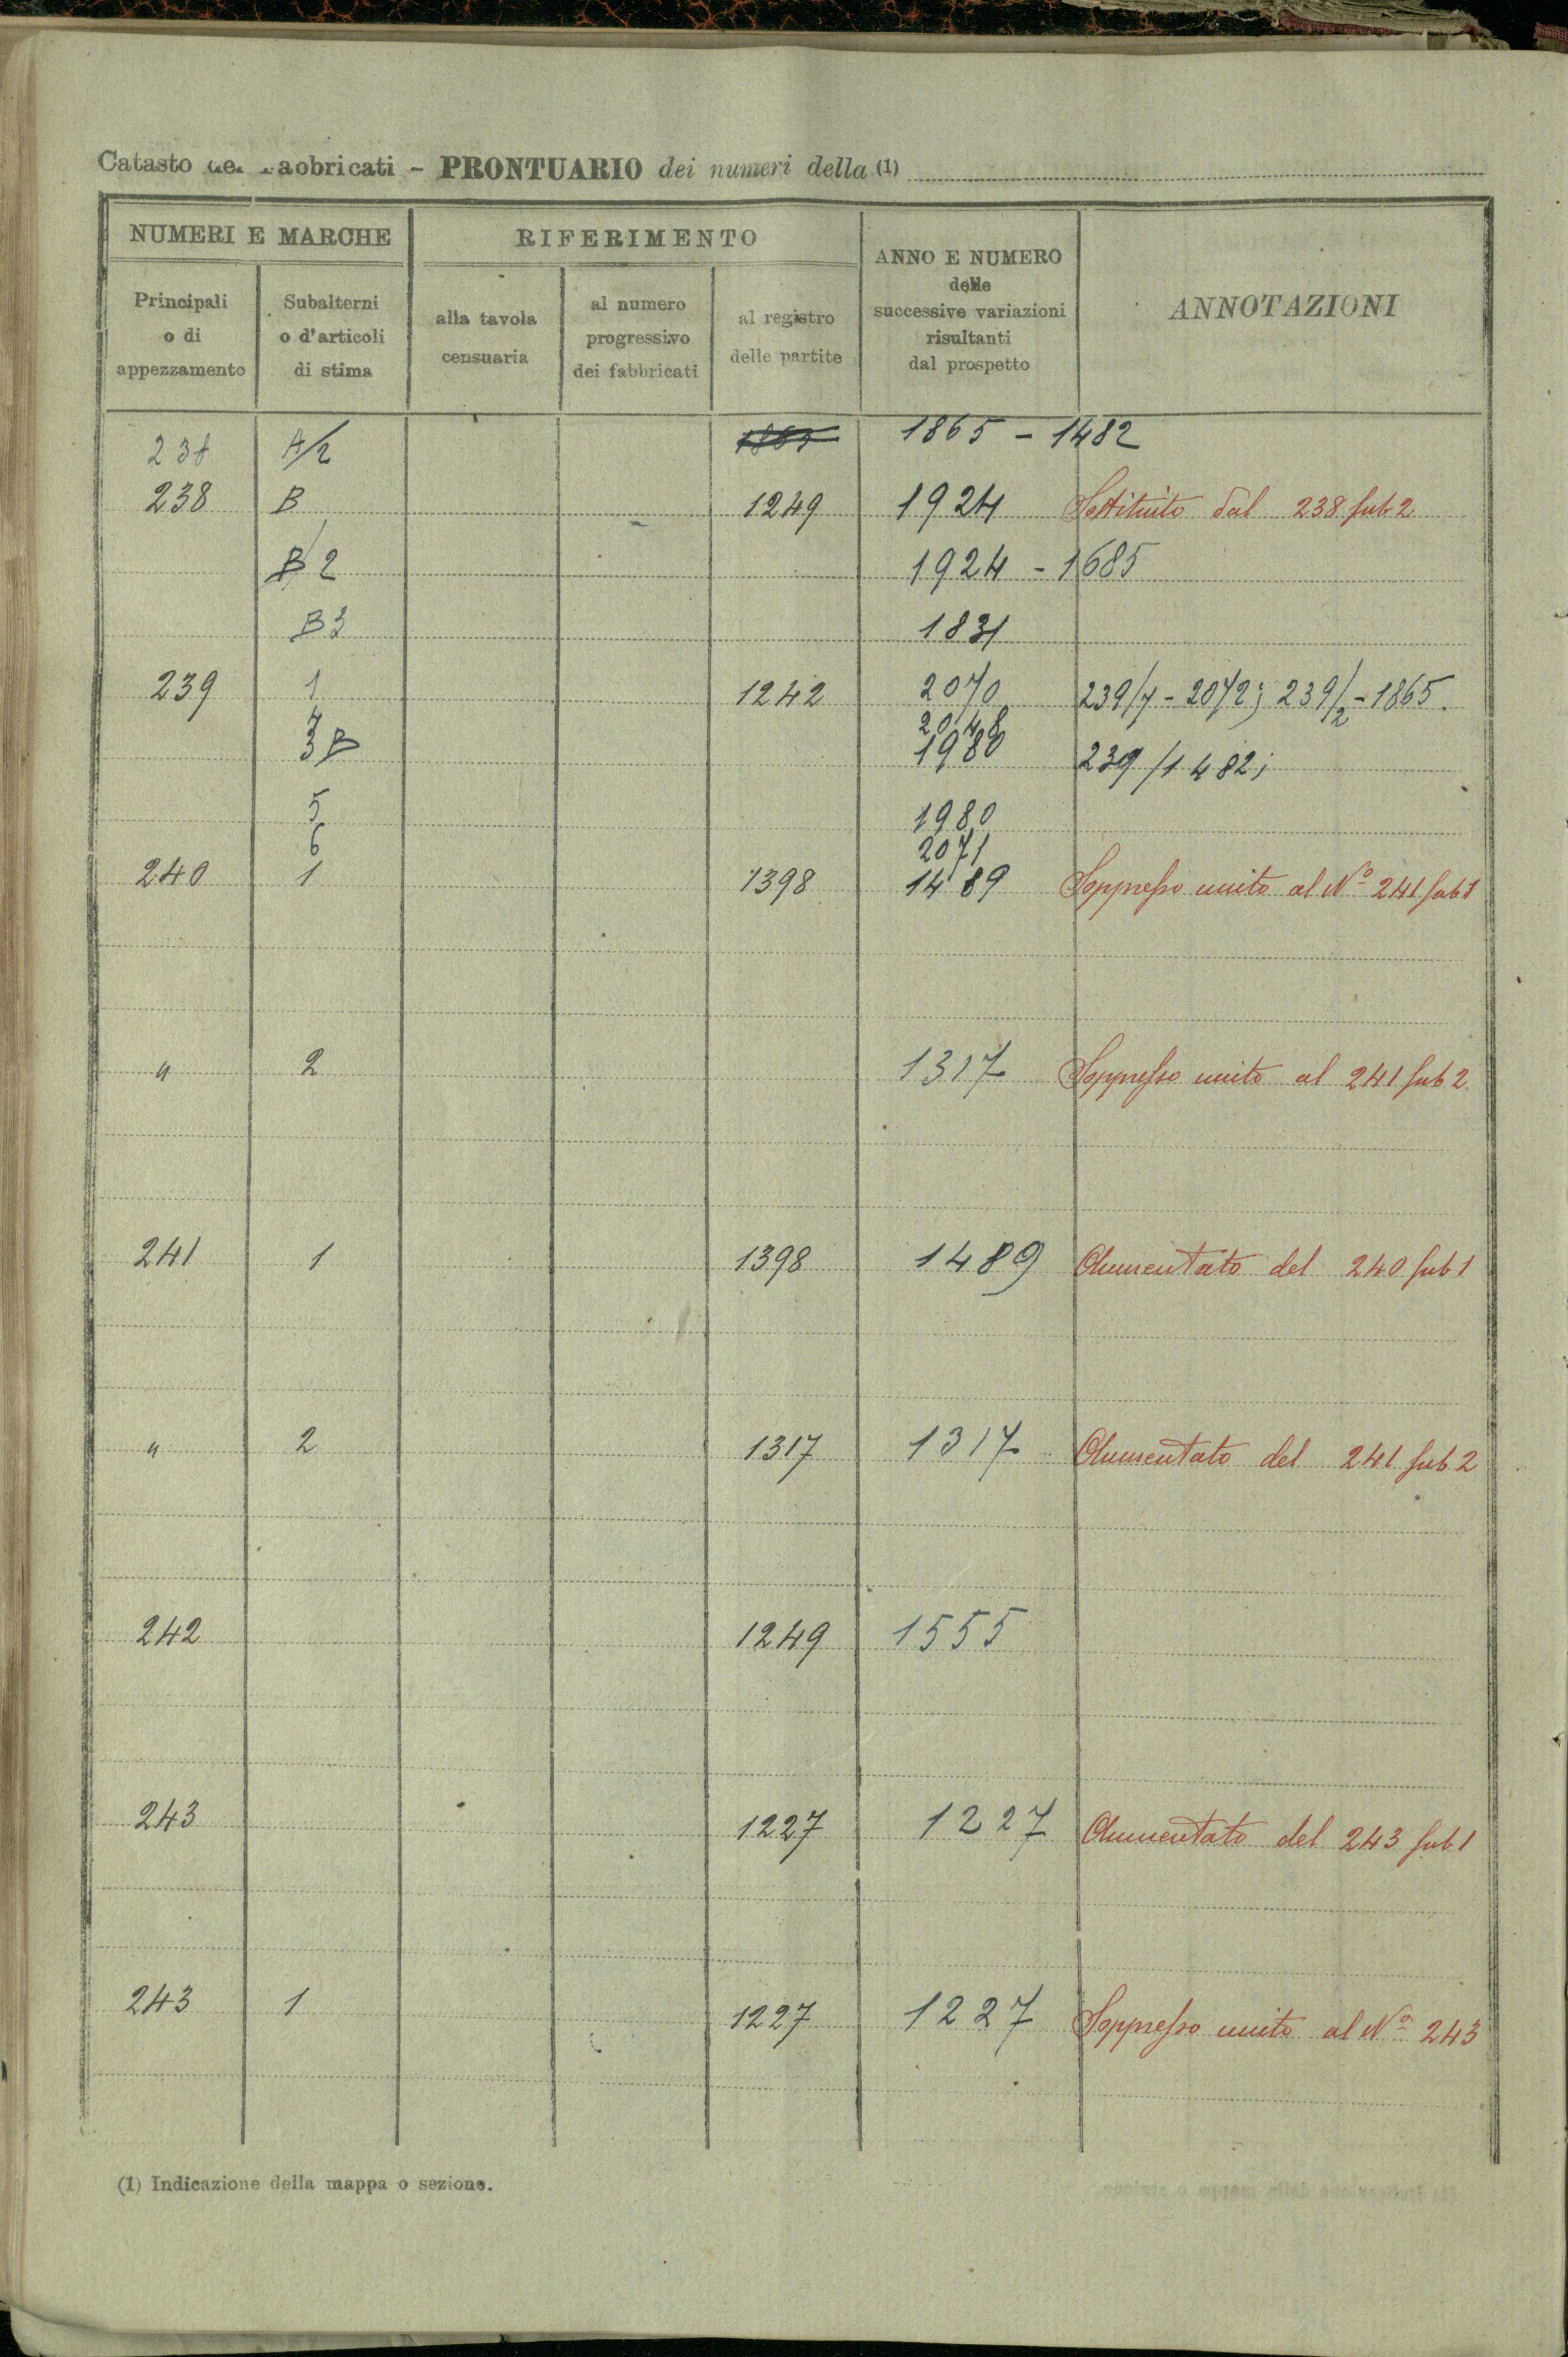 Catasto dei Fabbricati - PRONTUARIO dei numeri della (1)
NUMERI E MARCHE
RIFERIMENTO
ANNO E NUMERO
delle
successive variazioni
risultanti
dal prospetto
ANNOTAZIONI
Principali
o di
appezzamento
Subalterni
o d'articoli
di stima
alla tavola
censuaria
al numero
progressivo
dei fabbricati
al registro
delle partite
238 A/2 1865 - 1482
238 B 1249 1924 Sostituito dal 238 sub 2
B 2 1924 - 1685
B3 1831
239 1 1242 2070 239/7 - 2072; 239/2 - 1865.
4 2048
3 B 1980 239/1482;
5 1980
6 2071
240 1 1398 1489 Soppresso unito al Nº 241 sub 1
" 2 1317 Soppresso unito al 241 sub 2
241 1 1398 1489 Aumentato del 240 sub 1
" 2 1317 1317 Aumentato del 241 sub 2
242 1249 1555
243 1227 1227 Aumentato del 243 sub 1
243 1 1227 1227 Soppresso unito al Nº 243
(1) Indicazione della mappa o sezione.